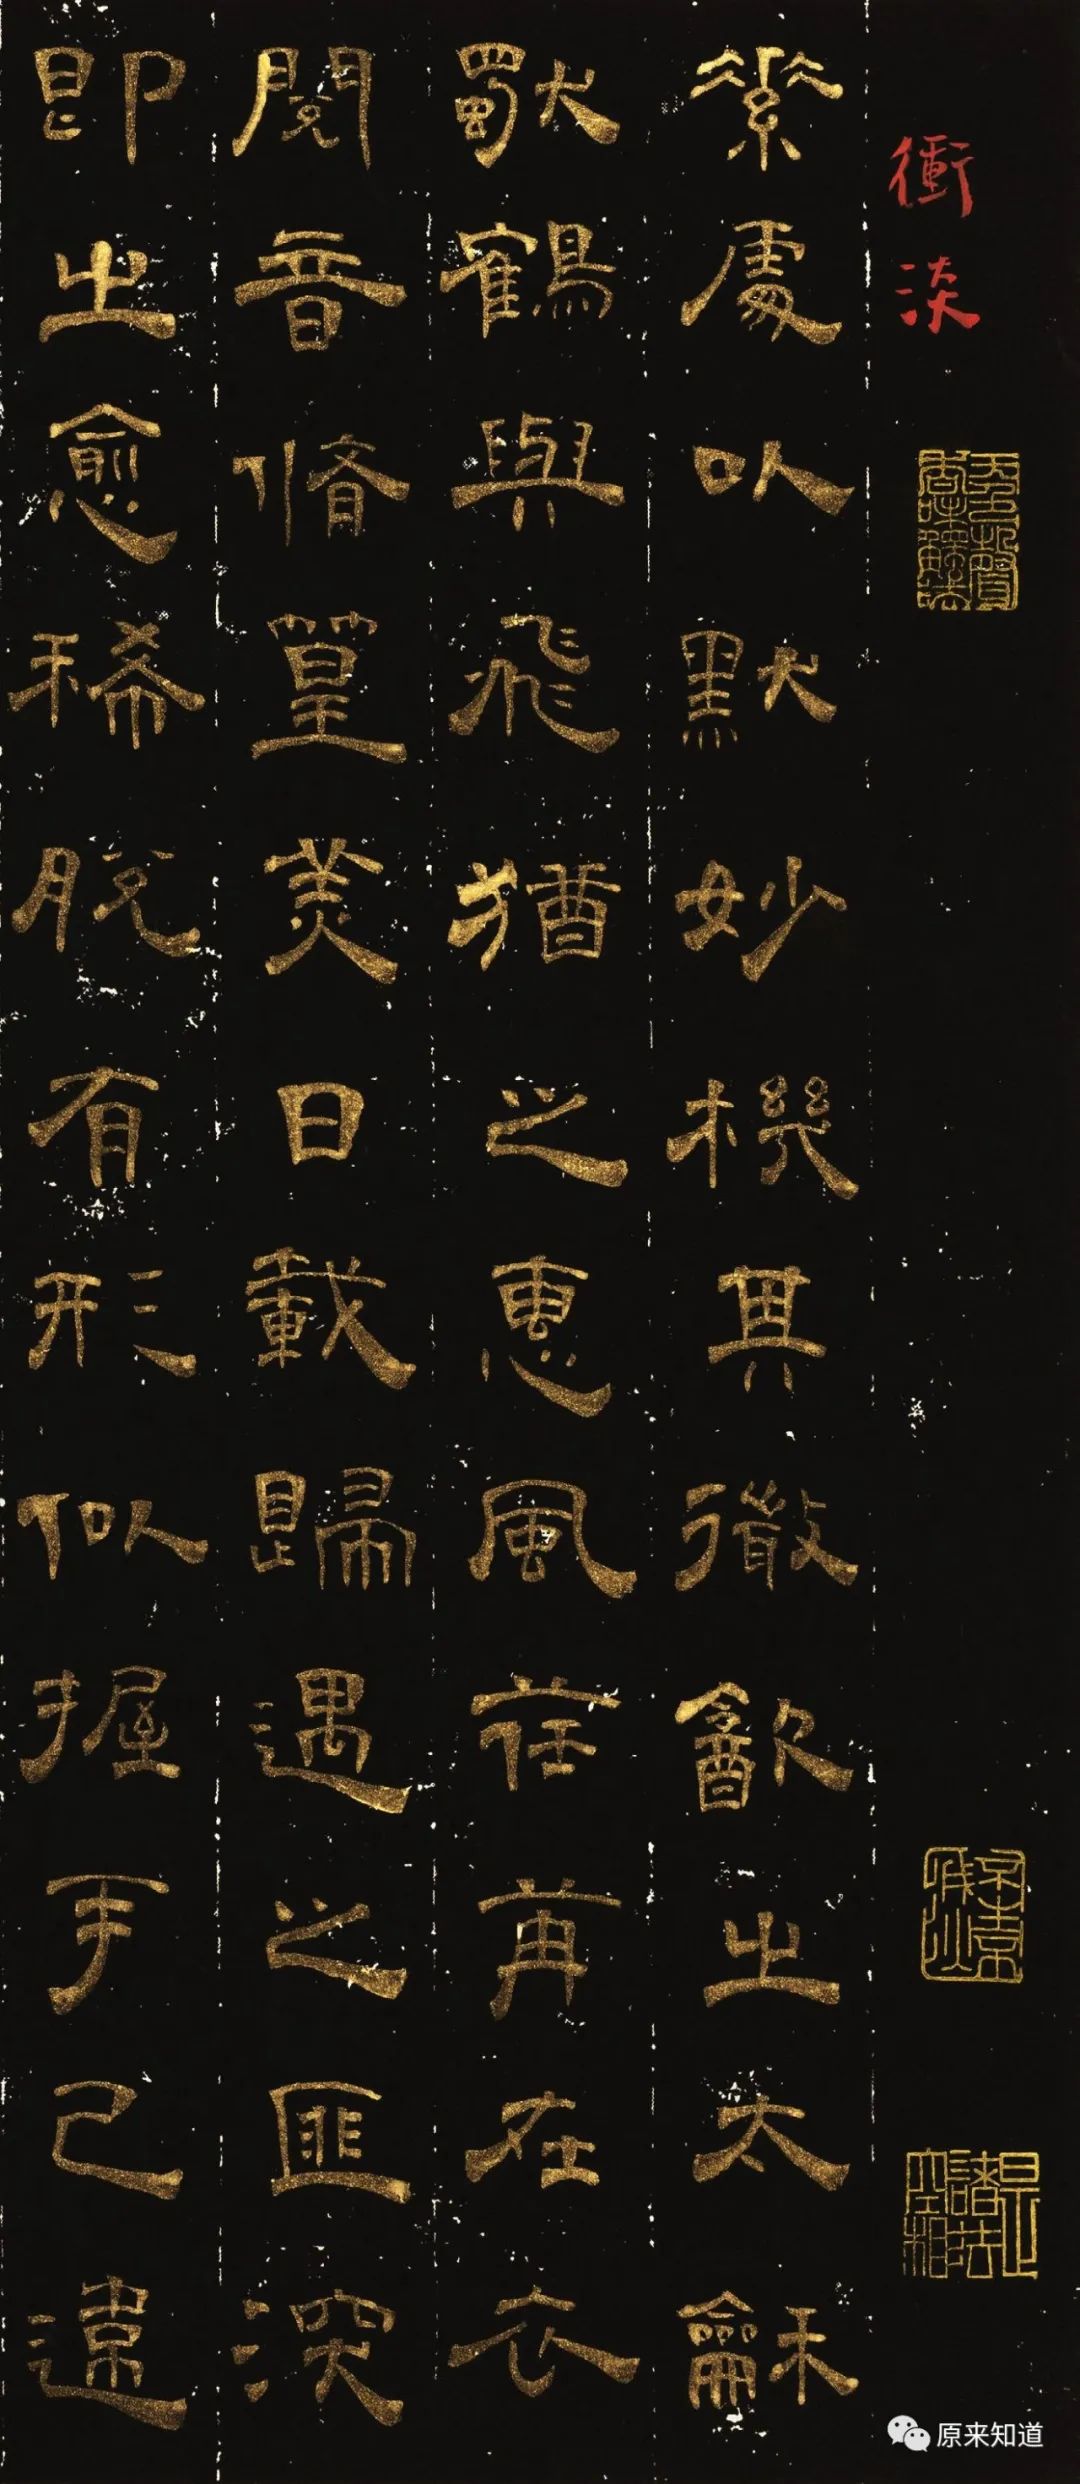 衝淡
素處以默妙機其微飲之太龢
獨鶴與飛猶之惠風荏苒在衣
閱音脩篁美曰載歸遇之匪深
即之愈稀脫有形似握手已違
原来知道